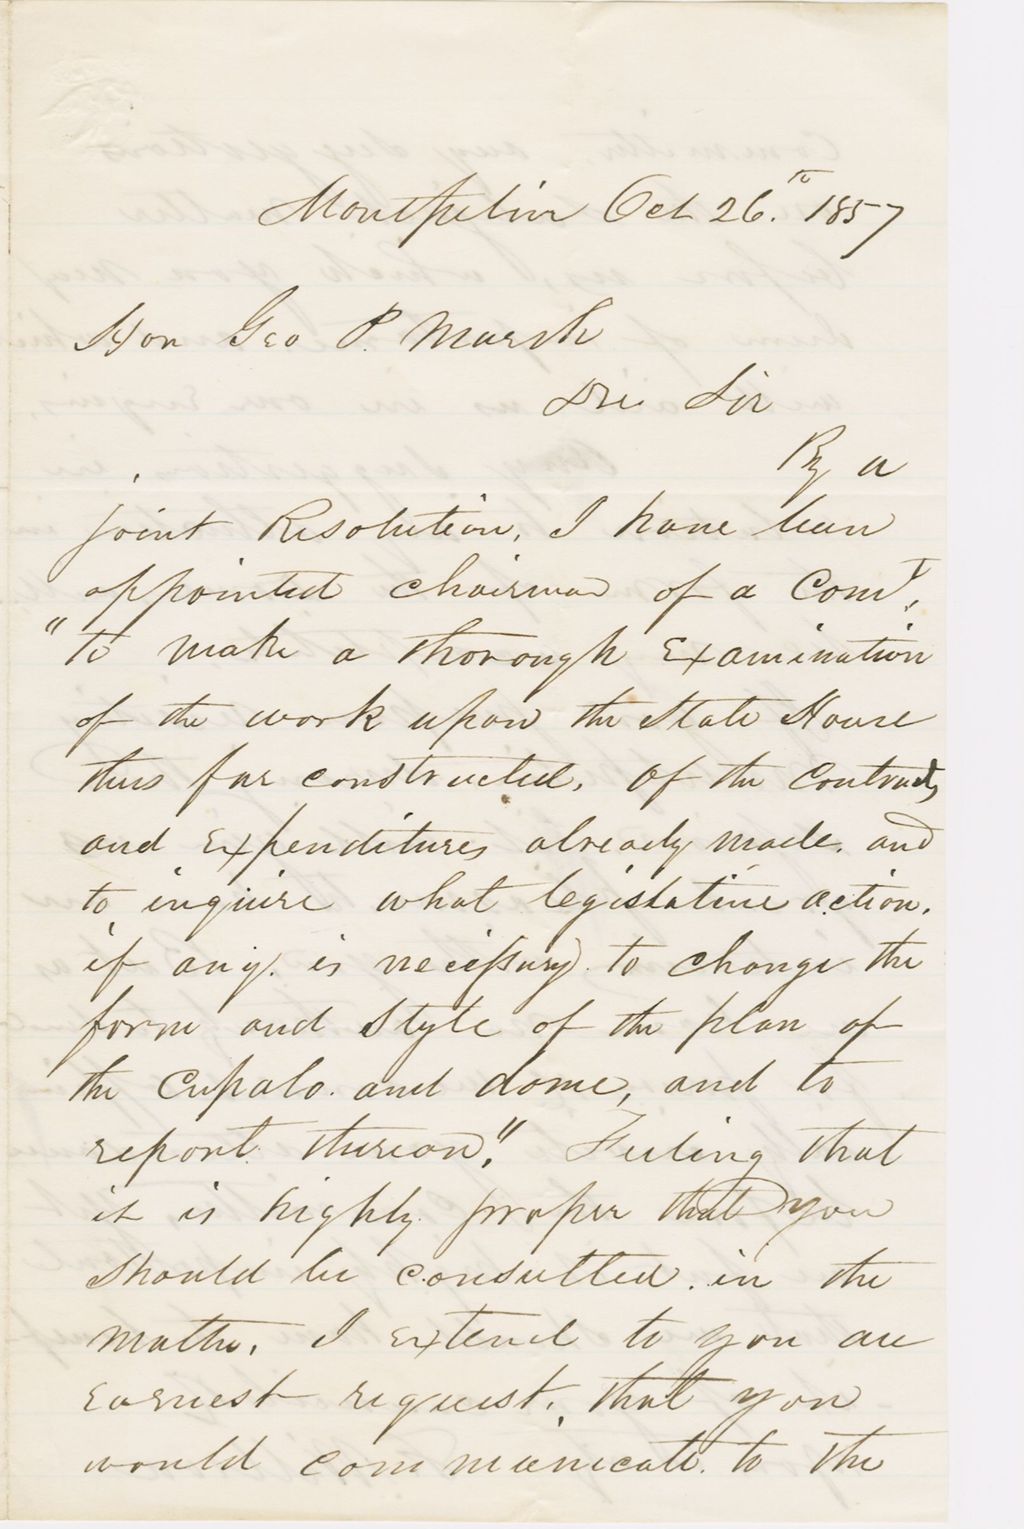 Montpelier Oct 26.th 1857
Hon Geo P. Marsh
Dre Sir
By a
joint Resolution, I have been
appointed chairman of a Comt,
"to make a thorough Examination
of the work upon the State House
thus far constructed, of the Contracts
and Expenditures already made, and
to inquire what legislative action,
if any, is necessary to change the
form and style of the plan of
the Cupalo and dome, and to
report thereon." Feeling that
it is highly proper that you
should be consulted in the
matter, I extend to you an
earnest request, that you
would communicate to the